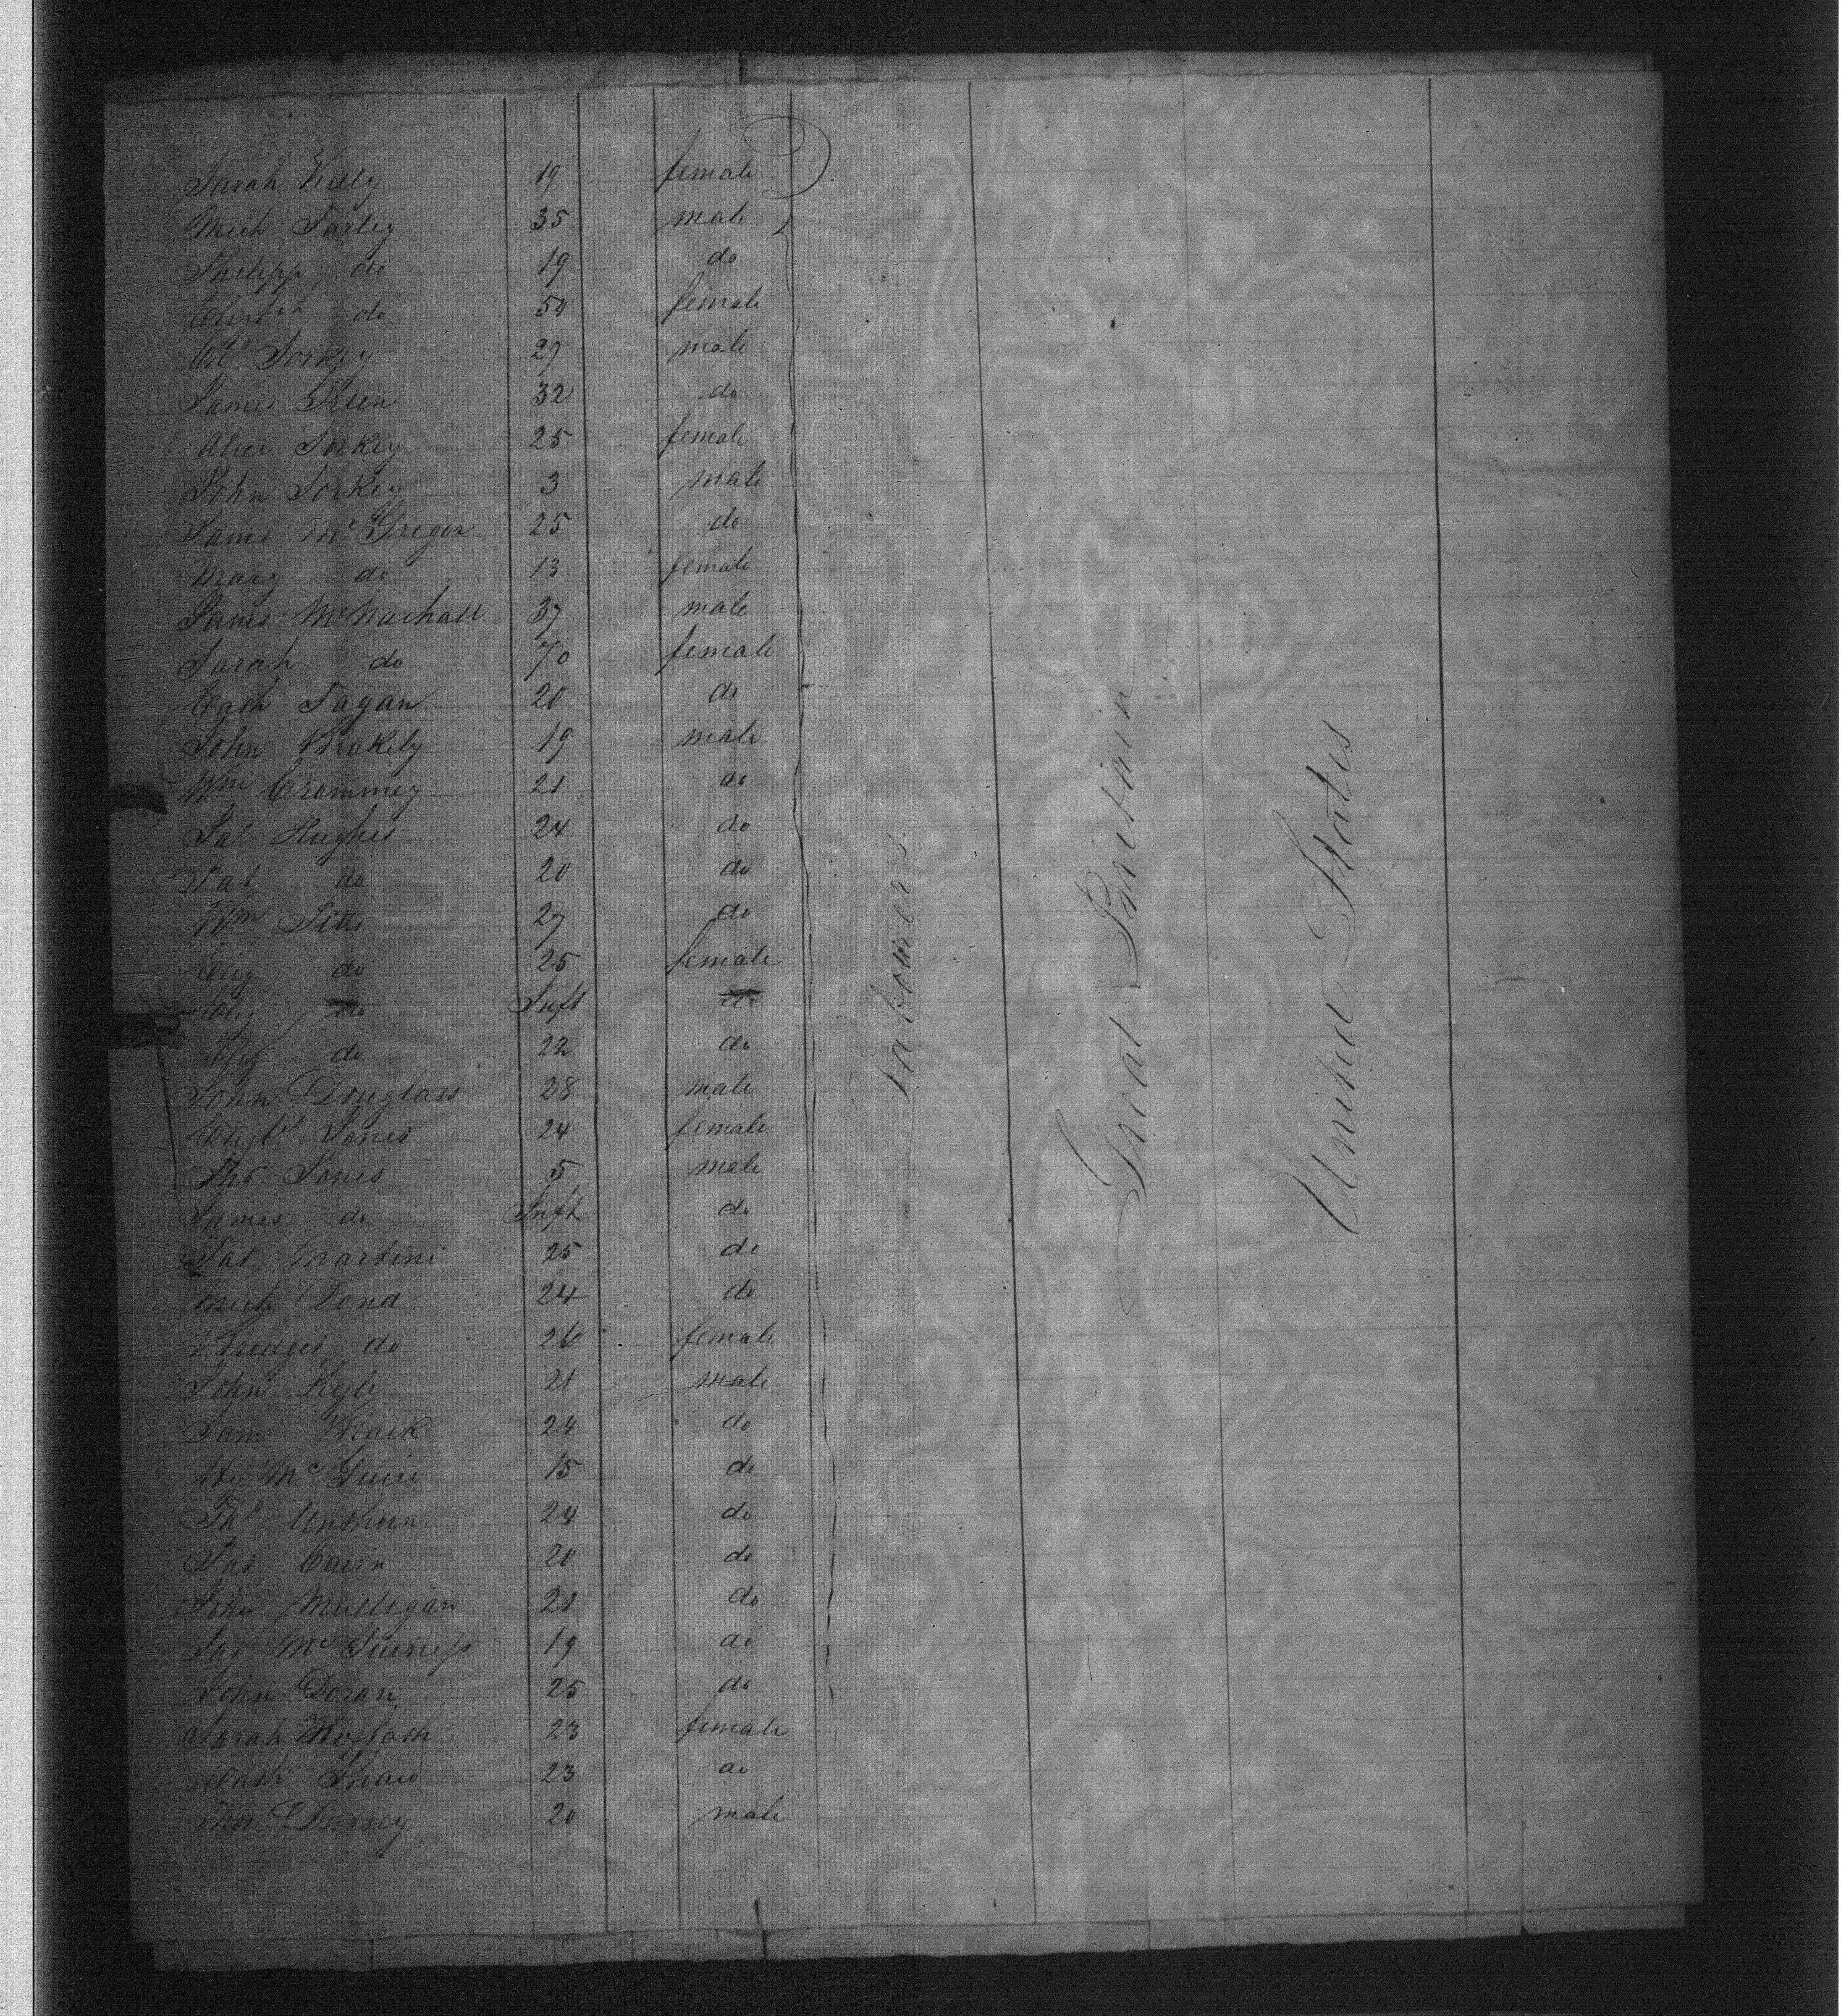 Sarah Kelly 19 female
Mich Farley 35 male
Philipp do 19 do
Elizbth do 54 female
Sorkey 27 male
James Green 32 do
Alice Sorkey 25 female
John Sorkey 3 male
James McGregor 25 do
Mary do 13 female
James McNachall 37 male
Sarah do 70 female
Cath Fagan 20 do
John Blakely 19 male
Wm Crommey 21 do
Pat Hughes 24 do
Pat do 20 do
Wm Pitts 27 do
Eliz do 25 female
Eliz do Inft do
Eliz do 22 do
John Douglass 28 male
Elizbth Jones 24 female
Ths Jones 5 male
James do Inft do
Pat Martini 25 do
Mich Dond 24 do
Bridget do 26 female
John Kyle 21 male
Sam Blaik 24 do
Hy McGuire 15 do
Ths 24 do
Pat Cairn 20 do
John Mulligan 21 do
Pat McGuiness 19 do
John Doran 25 do
Sarah 23 female
Cath Shaw 23 do
Thos Darsey 20 male
Labourers
Great Britain
United States